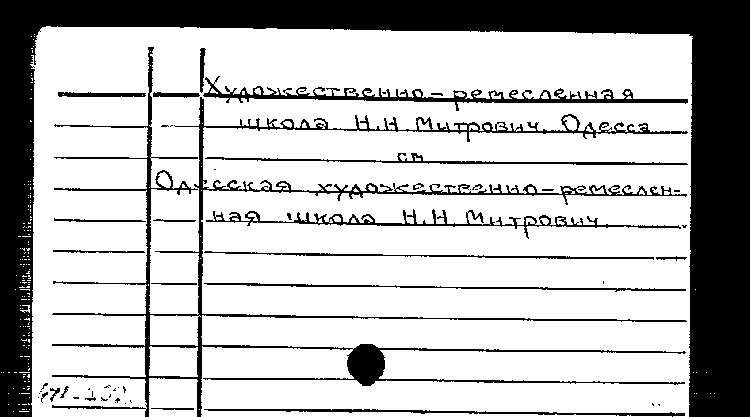 Художественно-ремесленная
школа Н.Н. Митрович. Одесса
см
Одесская художественно-ремеслен-
ная школа Н.Н. Митрович.